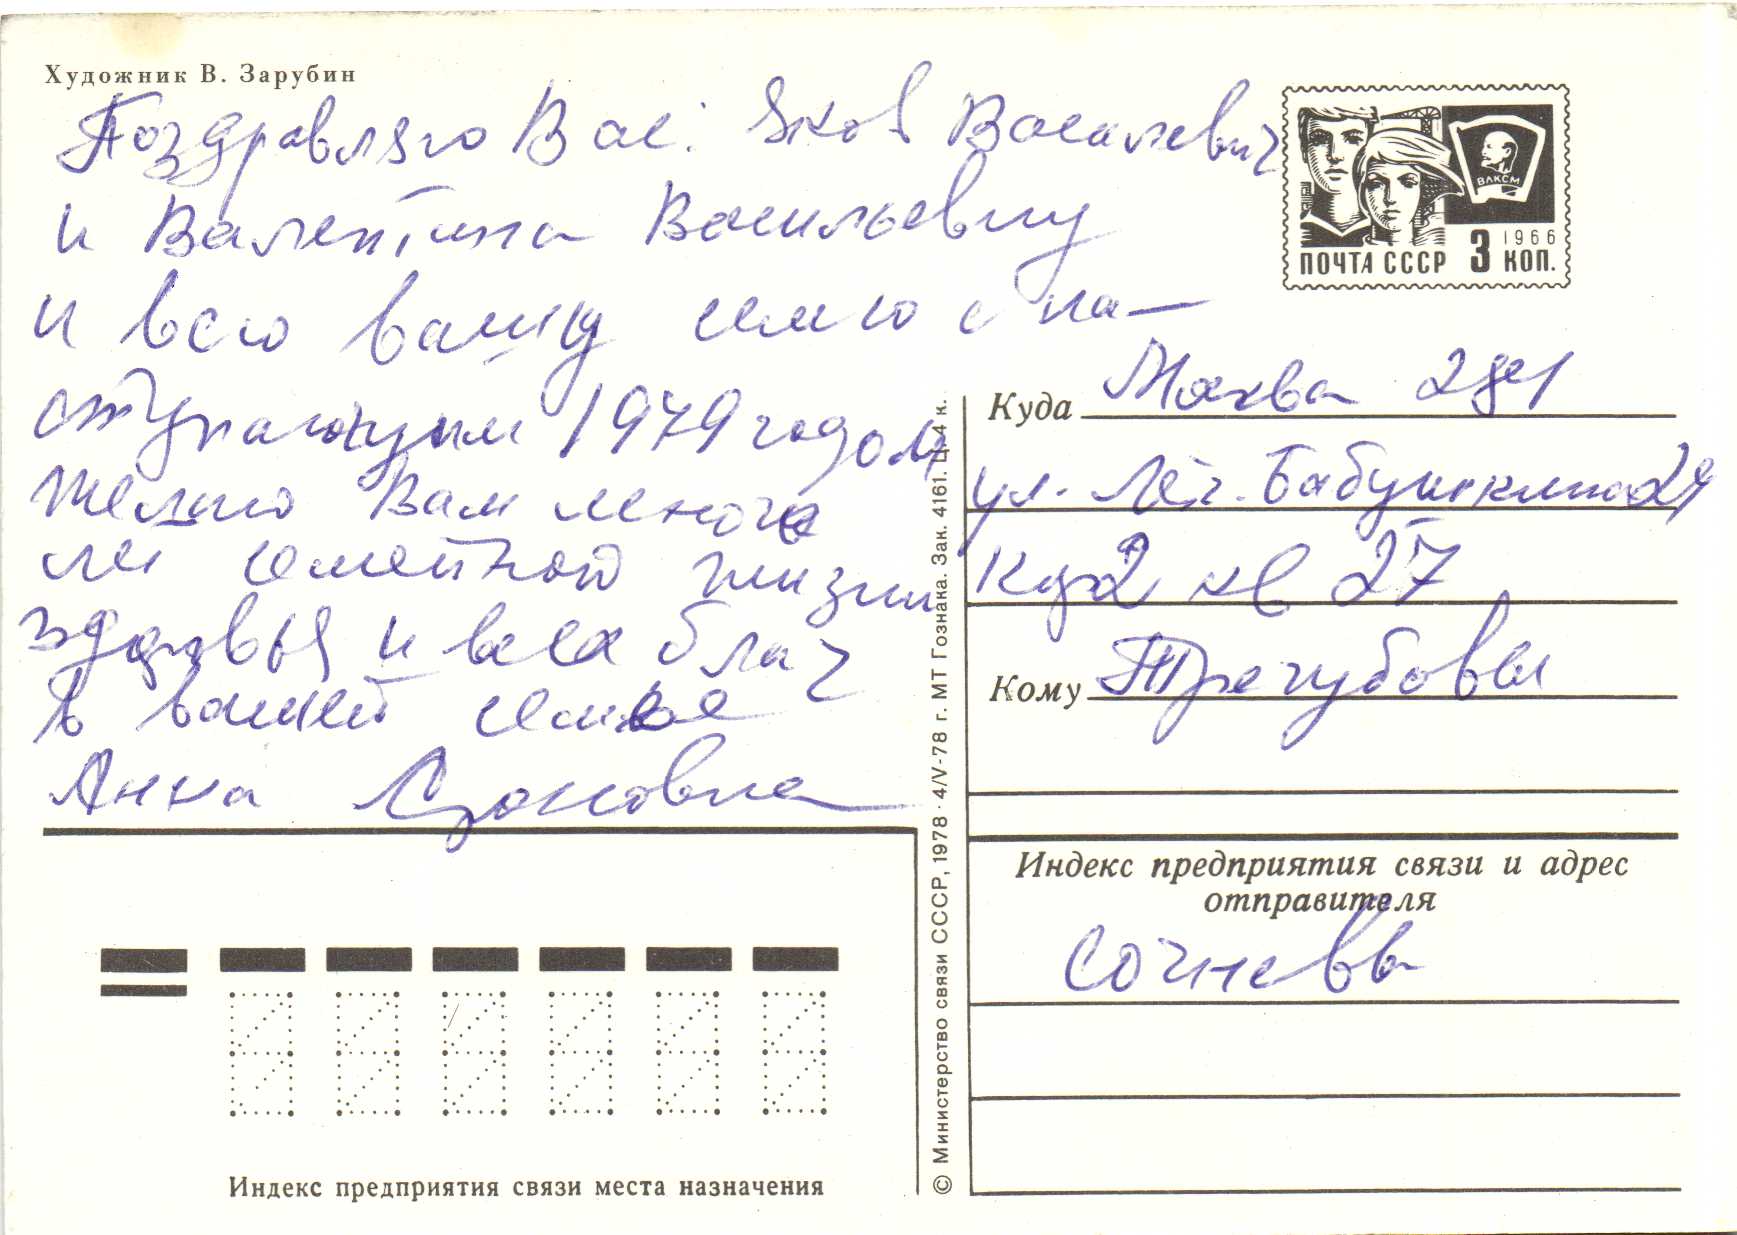 Художник В. Зарубин
Поздравляю Вас: Яков Василевич
и Валентина Васильевну
и всю вашу семю с на-
ступающим 1979 годом
Желаю Вам много
ле семейной жизни
здоровья и всех благ
в вашей семье
Анна
ВЛКСМ
1966
ПОЧТА СССР 3 КОП.
Куда Москва 281
ул. Лёт. Бабушкина 24
кор 2 кв 27
Кому Трегубовы
Индекс предприятия связи и адрес
отправителя
Сочневы
© Министерство связи СССР, 1978 · 4/V-78 г. МТ Гознака. Зак. 4161. Ц. 4 к.
Индекс предприятия связи места назначения